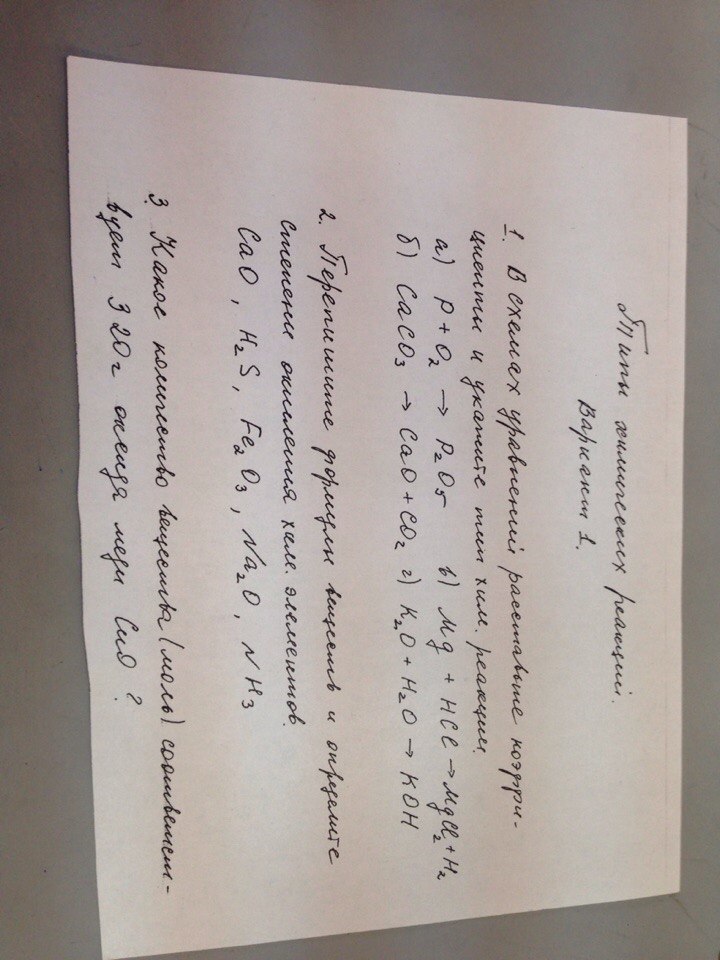 Типы химических реакций.
Вариант 1.
1. В схемах уравнений расставьте коэффи-
циенты и укажите тип хим. реакции.
а) P + O₂ → P₂O₅ в) Mg + HCl → MgCl₂ + H₂
б) CaCO₃ → CaO + CO₂ г) K₂O + H₂O → KOH
2. Перепишите формулы веществ и определите
степени окисления хим. элементов.
CaO, H₂S, Fe₂O₃, Na₂O, NH₃
3. Какое количество вещества (моль) соответст-
вует 320г оксида меди CuO?